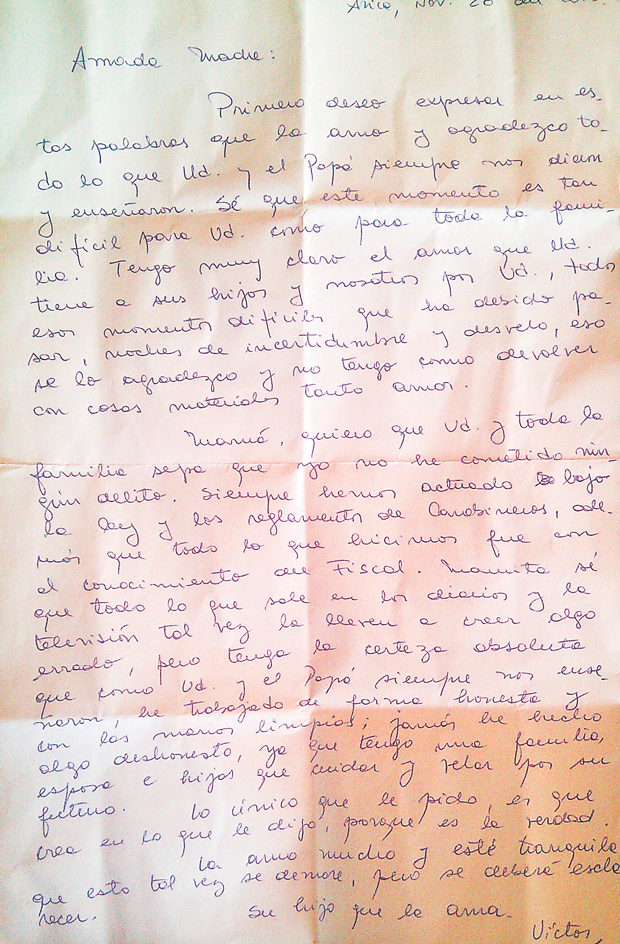 Arica, Nov. 20 del
Amada Madre:
Primero deseo expresar en es-
tas palabras que la amo y agradezco to-
do lo que Ud. y el Papá siempre nos dieron
y enseñaron. Sé que este momento es tan
difícil para Ud. como para toda la fami-
lia. Tengo muy claro el amor que Ud.
tiene a sus hijos y nosotros por Ud., todos
esos momentos difíciles que ha debido pa-
sar, noches de incertidumbre y desvelo, eso
se lo agradezco y no tengo como devolver
con cosas materiales tanto amor.
Mamá, quiero que Ud. y toda la
familia sepa que yo no he cometido nin-
gún delito. Siempre hemos actuado bajo
la ley y los reglamentos de Carabineros, ade-
más que todo lo que hicimos fue con
el conocimiento del Fiscal. Mamita sé
que todo lo que sale en los diarios y la
televisión tal vez la lleven a creer algo
errado, pero tenga la certeza absoluta
que como Ud. y el Papá siempre nos ense-
ñaron, he trabajado de forma honesta y
con las manos limpias; jamás he hecho
algo deshonesto, ya que tengo una familia,
esposa e hijos que cuidar y velar por su
futuro. Lo único que le pido, es que
crea en lo que le digo, porque es la verdad.
La amo mucho y esté tranquila
que esto tal vez se demore, pero se deberá escla
recer. Su hijo que la ama.
Víctor,